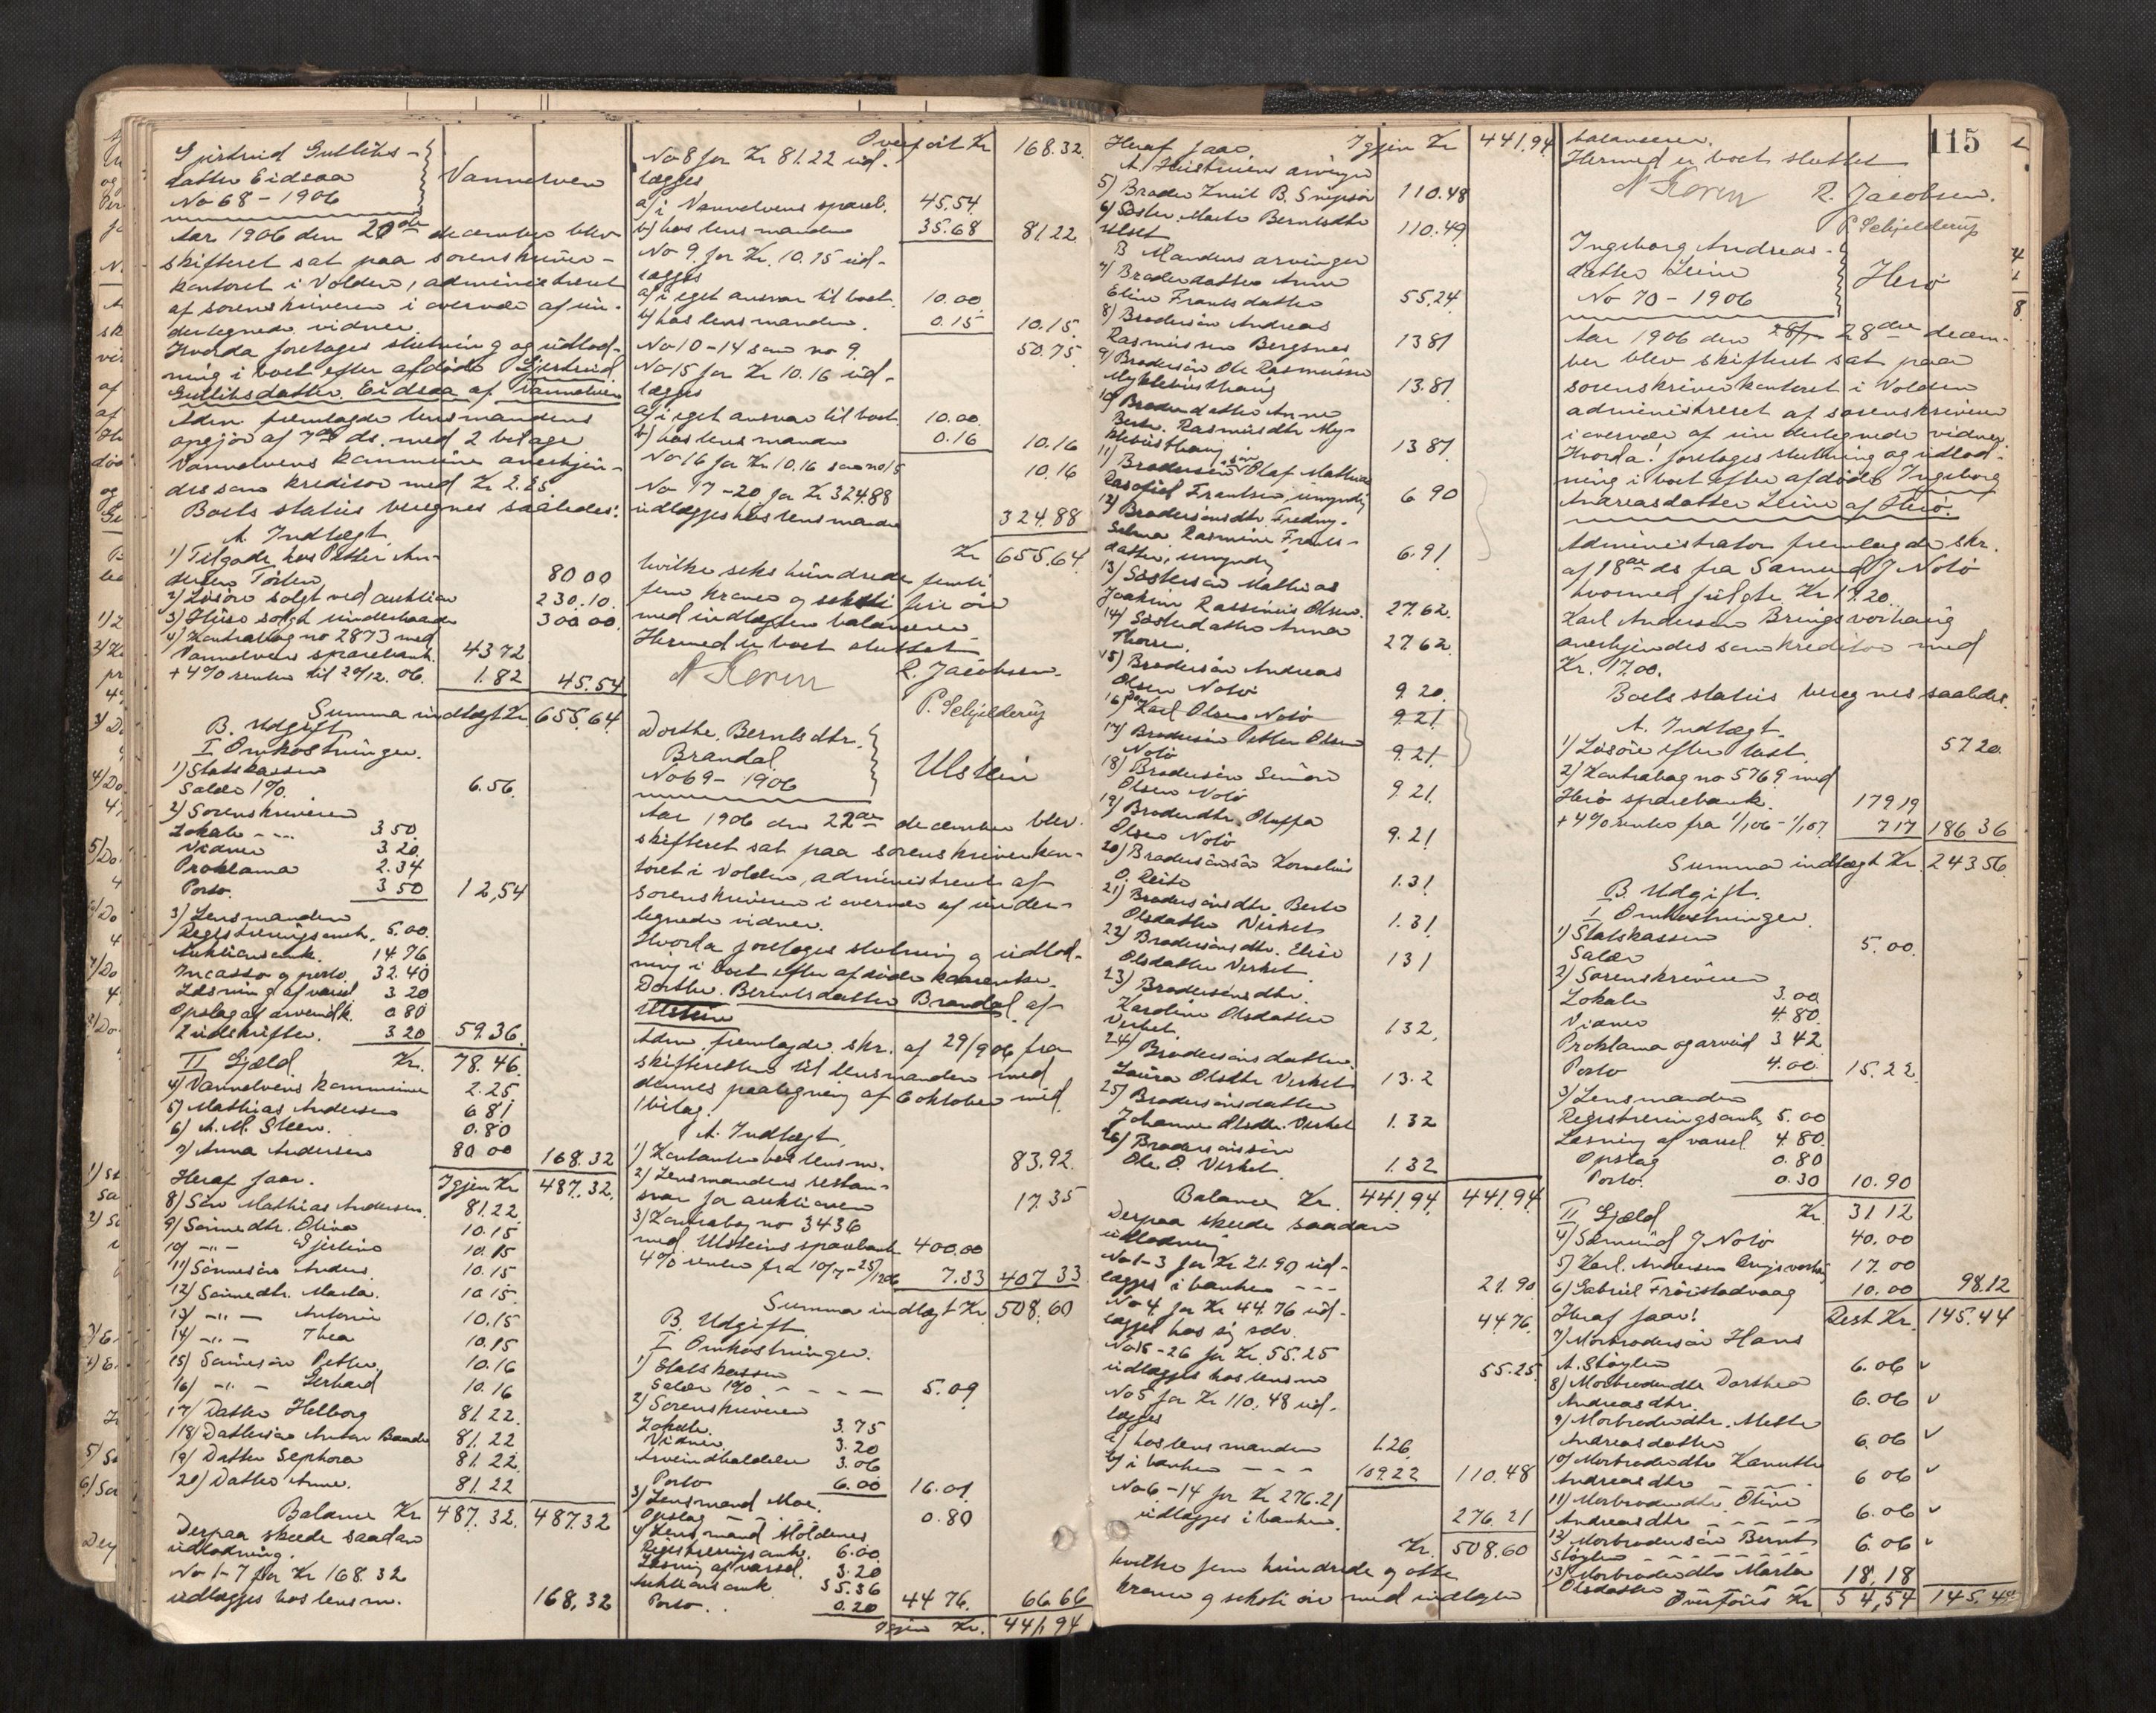 Gjertrud Gulliks-
datter Eidsaa
No 68 - 1906
Vannelven
Aar 1906 den 20de december blev
skifteret sat paa sorenskriver-
kontoret i Volden, administreret
af sorenskriveren i overvær af un-
dertegnede vidner.
Hvorda foretoges slutning og udlod-
ning i boet efter afdøde Gjertrud
Gulliksdatter Eidsaa af Vannelven
Adm. fremlagde lensmandens
opgjør af 7de ds. med 2 bilage
Vannelvens kommune anerkjen-
des som kreditor med Kr 2.25
Boets status beregnes saaledes:
A. Indtægt
1) Tilgode hos Petter An-
dersen 80 00
2) Løsøre solgt ved auktion 230.10.
3) Huse solgt underhaanden 300 00
4) Kontrabog no 2873 med
Vannelvens sparebank 43 72
+ 4% renter til 20/12. 06. 1.82 45.54
Summa indtægt Kr 655.64
B. Udgift
I Omkostninger.
1) Statskassen
Salær 1%. 6.56.
2) Sorenskriveren
Lokale - - - 3 50.
Vidner 3.20.
Proklama 2.34
Porto. 3 50 12,54
3) Lensmanden
Registreringsomk. 5.00.
Auktionsomk. 14 76
Incasso og porto. 32.40
Læsning af varsel 3 20
Opslag af arveindk. 0 80
Zudskrifter. 3 20 59.36.
II Gjæld Kr. 78.46.
4) Vannelvens kommune 2.25.
5) Mathias Andersen 6 81
6) A. M. Steen. 0.80
7) Anna Andersen 80 00 168.32
Heraf faar. Igjen Kr 487.32.
8) Søn Mathias Andersen. 81.22.
9) Sønnedtr. Oline 10.15
10) -"- Gjertine 10.15
11) Sønnesøn Anders. 10.15
12) Sønnedtr. Marta. 10.15.
13) -"- Antonie 10.15
14) -"- Thea 10.15
15) Sønnesøn Petter. 10.16
16) -"- Gerhard 10.16
17) Datter Helborg 81.22.
18) Dattersøn Anton Baade 81.22
19) Datter Sephora 81.22.
20) Datter Anne. 81.22
Balance Kr 487.32. 487.32
Derpaa skede saadan
udlodning.
No 1-7 for Kr 168.32
udlægges hos lensm. 168,32
Overført Kr 168.32.
No 8 for Kr 81.22 ud-
lægges
a) i Vannelvens spareb. 45.54.
b) hos lensmanden 35.68 81 22.
No 9 for Kr. 10.15 ud-
lægges
a) i eget ansvar til boet. 10.00.
b) hos lensmanden. 0.15 10.15.
No 10-14 som no 9. 50.75
No 15 for Kr 10.16 ud-
lægges
a) i eget ansvar til boet 10.00.
b) hos lensmanden 0.16 10.16
No 16 for Kr 10.16 som no 15 10.16
No 17-20 for Kr 324.88
udlægges hos lensmanden 324.88
Kr 655.64.
hvilke seks hundrede femti
fem kroner og seksti fire øre
med indtægten balancerer
Hermed er boet sluttet
N Koren R. Jacobsen.
P. Schjelderup
Dorthe. Berntsdtr.
Brandal
No 69 - 1906
Ulstein
Aar 1906 den 22de december blev
skifteret sat paa sorenskriverkon-
toret i Volden, administreret af
sorenskriveren i overvær af under-
tegnede vidner.
Hvorda foretoges slutning og udlod-
ning i boet efter afdøde
Dorthe. Berntsdatter Brandal af
Ulstein
Adm. fremlagde skr. af 29/9 06 fra
skifteretten til lensmanden med
dennes paategning af 6 oktober med
1 bilag.
A. Indtægt.
1) Kontanter hos lensm. 83.92.
2) Lensmandens restan-
svar for auktionen 17.35
3) Kontrabog no 3436
med Ulsteins sparebank 400.00
4% renter fra 10/7 - 25/12 06 7.33 407 33
Summa indtægt Kr 508.60
B. Udgift
I Omkostninger.
1) Statskassen
Salær 1% - - - - 5.09
2) Sorenskriveren
Lokale. 3.75
Vidner. 3.20
Arveindkaldelse 3.06
Porto 6.00 16.01
3) Lensmand Moe.
Opslag - - - - 0.80
4) Lensmand Moldenes
Registreringsomk. 6.00.
Læsning af varsel. 3.20
Auktionsomk 35.36
Porto. . 0.20 44 76. 66 66
Igjen Kr. 441.94
Heraf faar Igjen Kr 441.94
A. Hustruens arvinger
5) Broder Knut B. 110.48
6) Søster Marte Berntsdtr
Ulset 110.49
B Mandens arvinger
7) Broderdatter Anne
Eline Frantsdatter 55.24
8) Brodersøn Andreas
Rasmussen Bergsnes 13 81
9) Brodersøn Ole Rasmussen
Myklebusthaug 13.81.
10) Broderdatter Anne
Berte. Rasmusdtr My-
klebusthaug 13 81
11) Brodersønsøn Olaf Mathias
Frantsen, umyndig 6 90
12) Brodersønsdtr. Fredny.
Salma Rasmine Frants-
datter, umyndig 6.91
13) Søstersøn Mathias
Joakim Rassinus Olsen. 27.62.
14) Søsterdatter Anna
Thorsen. 27 62
15) Brodersøn Andreas
Olsen Notø 9.20.
16) Do Karl Olsen Notø 9.21
17) Brodersøn Petter Olsen
Notø 9.21.
18) Brodersøn Simon
Olsen Notø 9.21.
19) Broderdtr. Oluffa
Olsen Notø 9.21
20) Brodersønsøn Kornelius
O. Reite 1.31
21) Brodersønsdtr Berte
Olsdatter Virket 1.31
22) Brodersønsdtr. Elise
Olsdatter Verket 1 31
23) Brodersønsdtr.
Karoline Olsdatter
Verket. 1 32.
24) Brodersønsdatter
Laura Olsdtr Verket 13.2
25) Brodersønsdatter
Johanne Olsdtr. Verket 1.32
26) Brodersønsøn
Ole. O. Verket 1.32
Balance Kr. 441.94. 441.94
Derpaa skede saadan
udlodning
No 1-3 for Kr 21.90 ud-
lægges i banken - - - 21.90
No 4. for Kr 44.76 ud-
lægges hos sig selv. 44 76.
No 15-26 for Kr. 55.25
udlægges hos lensm 55.25.
No 5 for Kr 110.48 ud-
lægges
a) hos lensmanden 1.26.
b) i banken - - - 109.22 110.48
No 6-14 for Kr 276.21
udlægges i banken. 276.21
Kr. 508.60
hvilke fem hundrede og otte
kroner og seksti øre med indtægten
balancerer. 115
Hermed er boet sluttet
N Koren R. Jacobsen.
P. Schjelderup
Ingeborg Andreas-
datter Leine
No 70 - 1906
Herø
Aar 1906 den 28de decem-
ber blev skifteret sat paa
sorenskriverkontoret i Volden
administreret af sorenskriveren
i overvær af undertegnede vidner.
Hvorda! foretoges slutning og udlod-
ning i boet efter afdøde Ingeborg
Andreasdatter Leine af Herø.
Administrator fremlagde skr.
af 18de ds fra Samund J Notø
hvormed fulgte Kr 17.20
Karl Andersen Bringsvorhaug
anerkjendes som kreditor med
Kr. 17.00.
Boets status beregnes saaledes.
A. Indtægt.
1) Løsøre efter takst 57 20.
2) Kontrabog no 5769 med
Herø sparebank. 179 19
+ 4% renter fra 1/1 06 - 1/1 07. 7 17 186 36
Summa indtægt Kr. 243 56.
B. Udgift.
I Omkostninger.
1) Statskassen
Salær 5.00.
2) Sorenskriveren
Lokale 3.00.
Vidner 4.80.
Proklama og arveind 3 42.
Porto 4.00. 15.22.
3) Lensmanden
Registreringsomk. 5.00
Læsning af varsel 4.80.
Opslag 0.80
Porto. 0.30 10.90
II Gjæld Kr. 31 12
4) Samund J Notø 40.00
5) Karl. Andersen Bringsvorhaug 17 00
6) Gabriel Frøistadvaag 10.00 98.12
Heraf faar! Rest Kr. 145.44
7) Morbrodersøn Hans
A. Støylen 6.06 v
8) Morbroderdtr Dorthea
Andreasdtr. 6.06 v
9) Morbroderdtr. Mette
Andreasdatter 6.06 v
10) Morbroderdtr Kanutte
Andreasdtr - - - - 6 06 v
11) Morbroderdtr. Oline
Andreasdtr - - - - - 6.06 v
12) Morbrodersøn Bernt
Støylen - - - - - - 6.06 v
13) Morbroderdtr Marta
Olsdatter 18,18
Overføres Kr 54,54 145.44